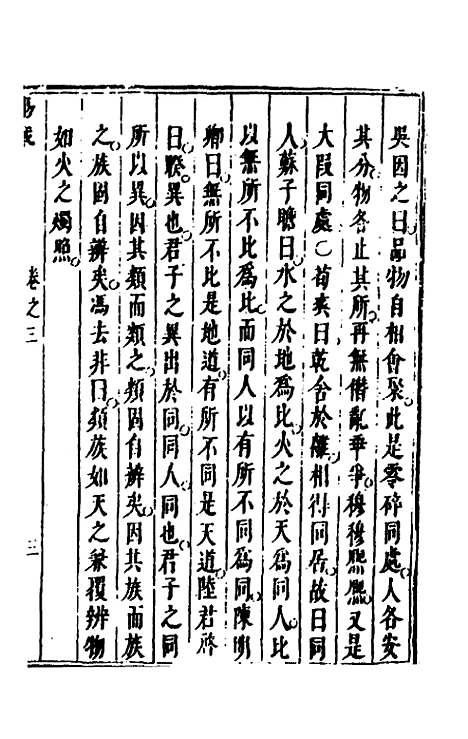 吳因之曰品物自相會聚此是零碎同處人各安
其分物各止其所再無僭亂乖爭穆穆熈熈又是
大段同處○荀爽曰乾舍於離相得同居故曰同
人蘇子瞻曰水之於地爲比火之於天爲同人比
以無所不比爲比而同人以有所不同爲同陳明
卿曰無所不比是地道有所不同是天道陸君啓
曰睽異也君子之異出於同同人同也君子之同
所以異因其類而類之類固自辨矣因其族而族
之族固自辨矣馮去非曰類族如天之兼覆辨物
如火之燭照
卷之三
三